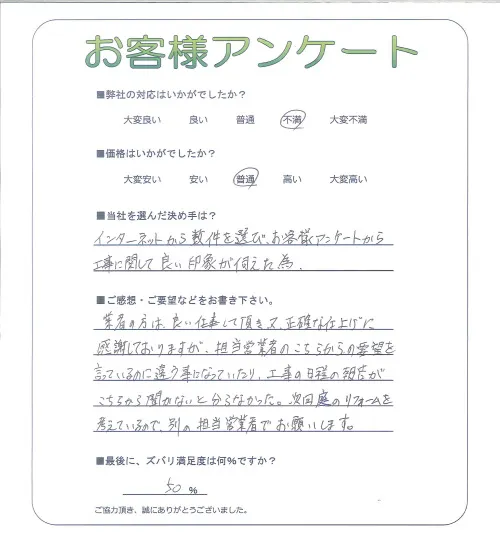 お客様アンケート
■弊社の対応はいかがでしたか？
大変良い 良い 普通 不満 大変不満
■価格はいかがでしたか？
大変安い 安い 普通 高い 大変高い
■当社を選んだ決め手は？
インターネットから数件を選び、お客様アンケートから
工事に関して良い印象が伺えた為。
■ご感想・ご要望などをお書き下さい。
業者の方は、良い仕事して頂き又、正確な仕上げに
感謝しておりますが、担当営業者のこちらからの要望を
言っているのに違う事になっていたり、工事の日程の報告が
こちらから聞かないと分らなかった。次回庭のリフォームを
考えているので、別の担当営業者でお願いします。
■最後に、ズバリ満足度は何％ですか？
50 ％
ご協力頂き、誠にありがとうございました。